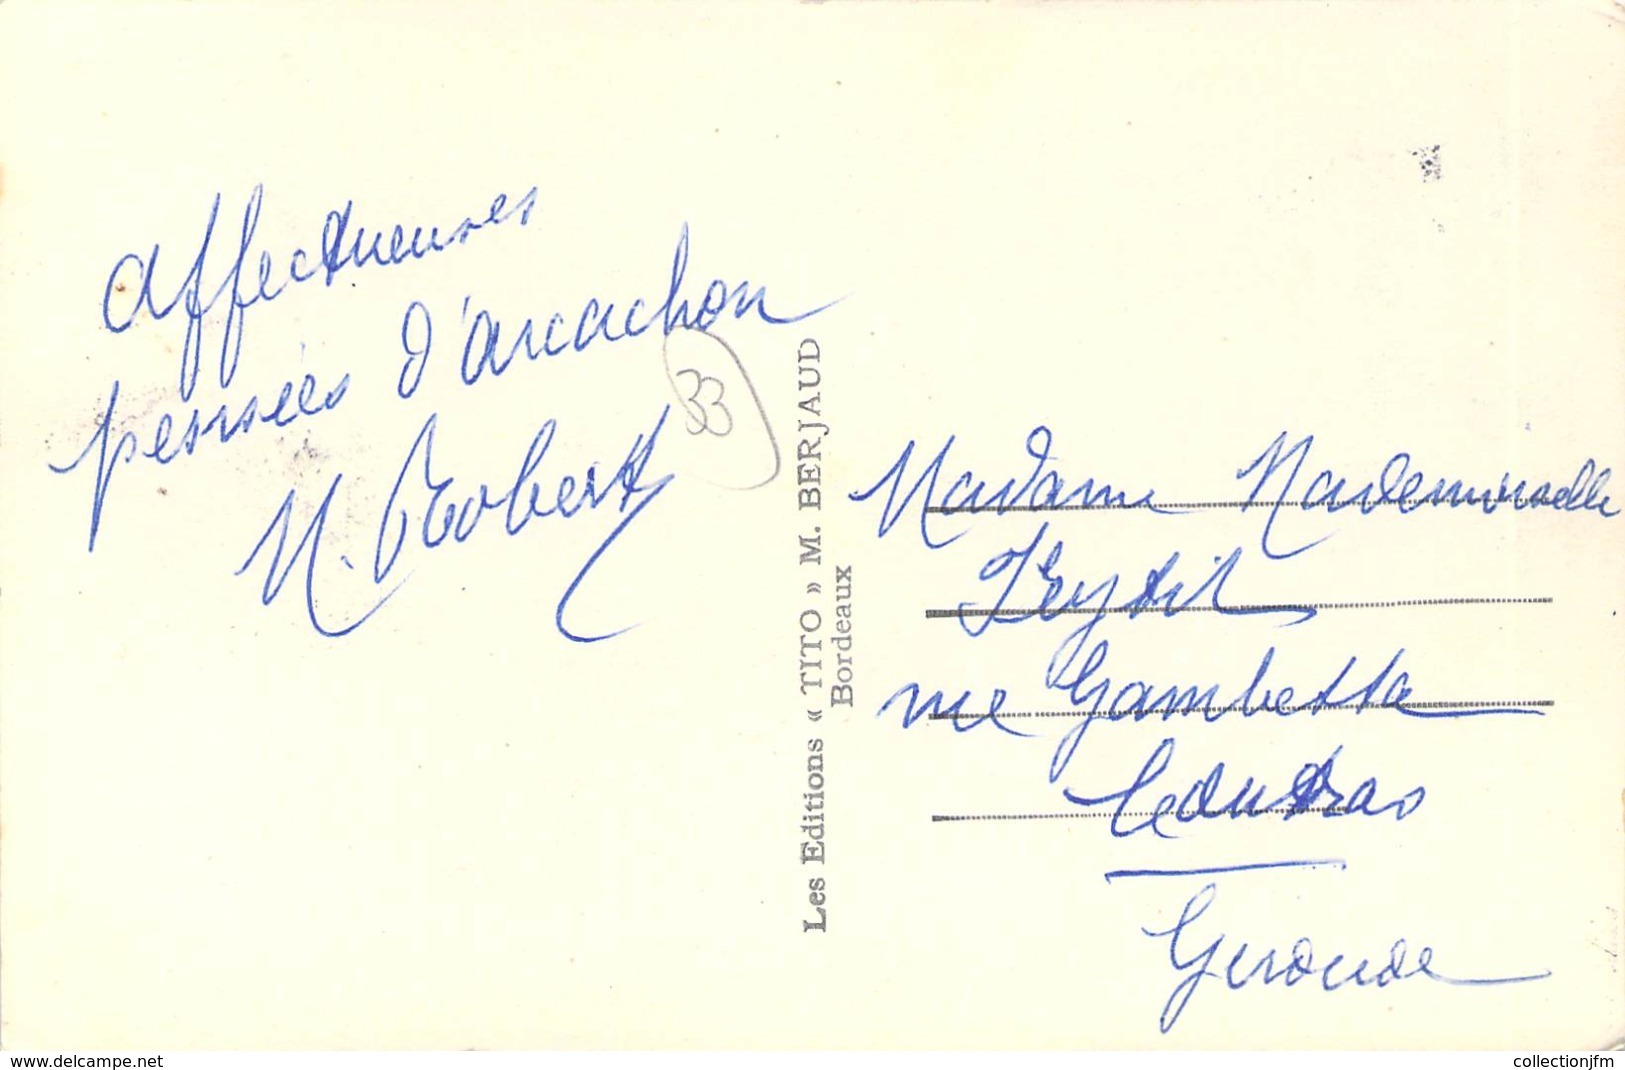 Affectueuses
pensées d'arcachon
M. Robert
33
Les Editions « TITO » M. BERJAUD
Bordeaux
Madame Mademoiselle
Feytit
rue Gambetta
Coutras
Gironde
www.delcampe.net
collectionjfm